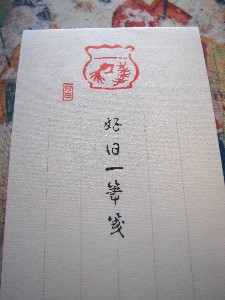 好日一筆箋